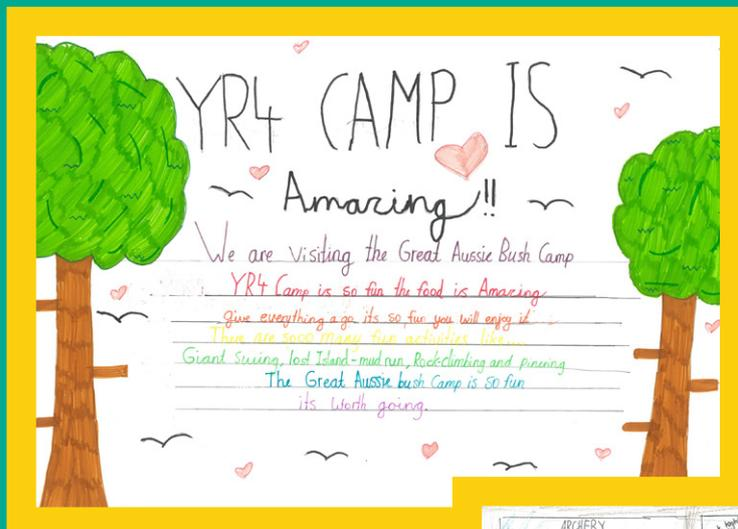 YR4 CAMP IS
Amazing!!
We are visiting the Great Aussie Bush Camp
YR4 Camp is so fun the food is Amazing
give everything a go its so fun you will enjoy it
There are sooo many fun activities like....
Giant Swing, lost Island-mud run, Rockclimbing and pinering
The Great Aussie bush Camp is so fun
its worth going.
ARCHERY